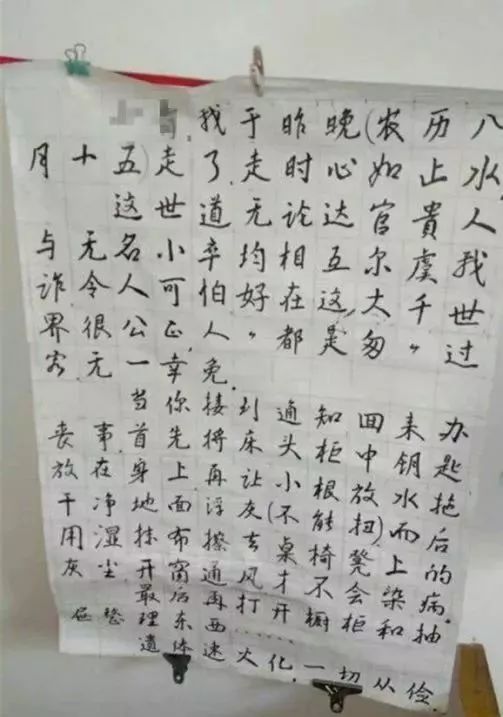 我于昨晚(农历八
月十五)走了,走时心如止水,
这世道无论达官貴人
与无名小卒均相互尔虞我
诈令人可怕,好在这大千世
界很公正,“人人都是匆匆过
客”,无一幸免.
当你接到通知回来办
丧事首先将床头柜中钥匙
放在身上再让小根放水拖
干净地面浮灰(不能扭)而后
用湿抹布擦去桌椅凳上的
灰尘开窗通风才不会染病.
最后再打开橱柜和抽
屉整理东西……
遗体速火化,一切从俭.